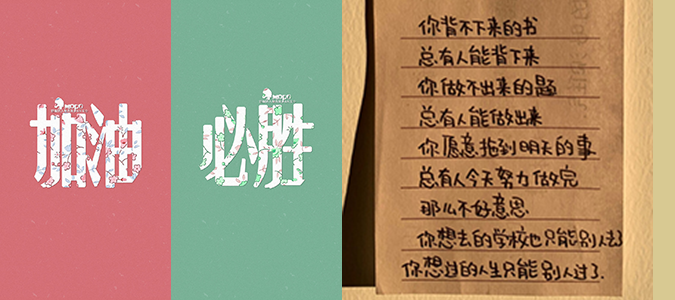 加油
必胜
你背不下来的书
总有人能背下来
你做不出来的题
总有人能做出来
你愿意拖到明天的事
总有人今天努力做完
那么不好意思
你想去的学校也只能别人去了
你想过的人生只能别人过了.